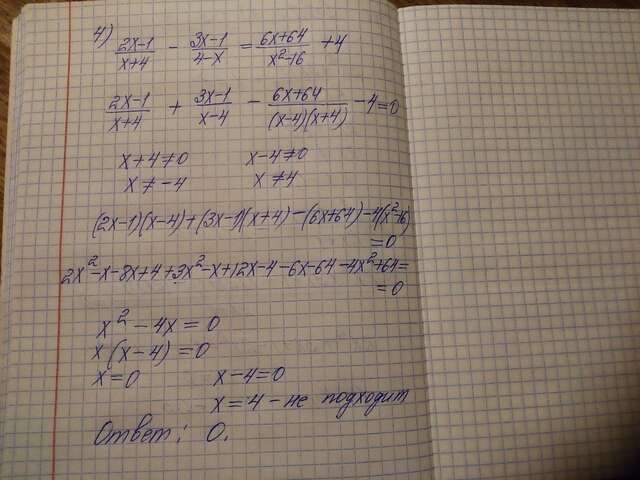 4) (2x-1)/(x+4) - (3x-1)/(4-x) = (6x+64)/(x²-16) + 4
(2x-1)/(x+4) + (3x-1)/(x-4) - (6x+64)/((x-4)(x+4)) - 4 = 0
x+4≠0 x-4≠0
x≠-4 x≠4
(2x-1)(x-4)+(3x-1)(x+4)-(6x+64)-4(x²-16)
=0
2x²-x-8x+4+3x²-x+12x-4-6x-64-4x²+64=
=0
x²-4x=0
x(x-4)=0
x=0 x-4=0
x=4 - не подходит
Ответ: 0.